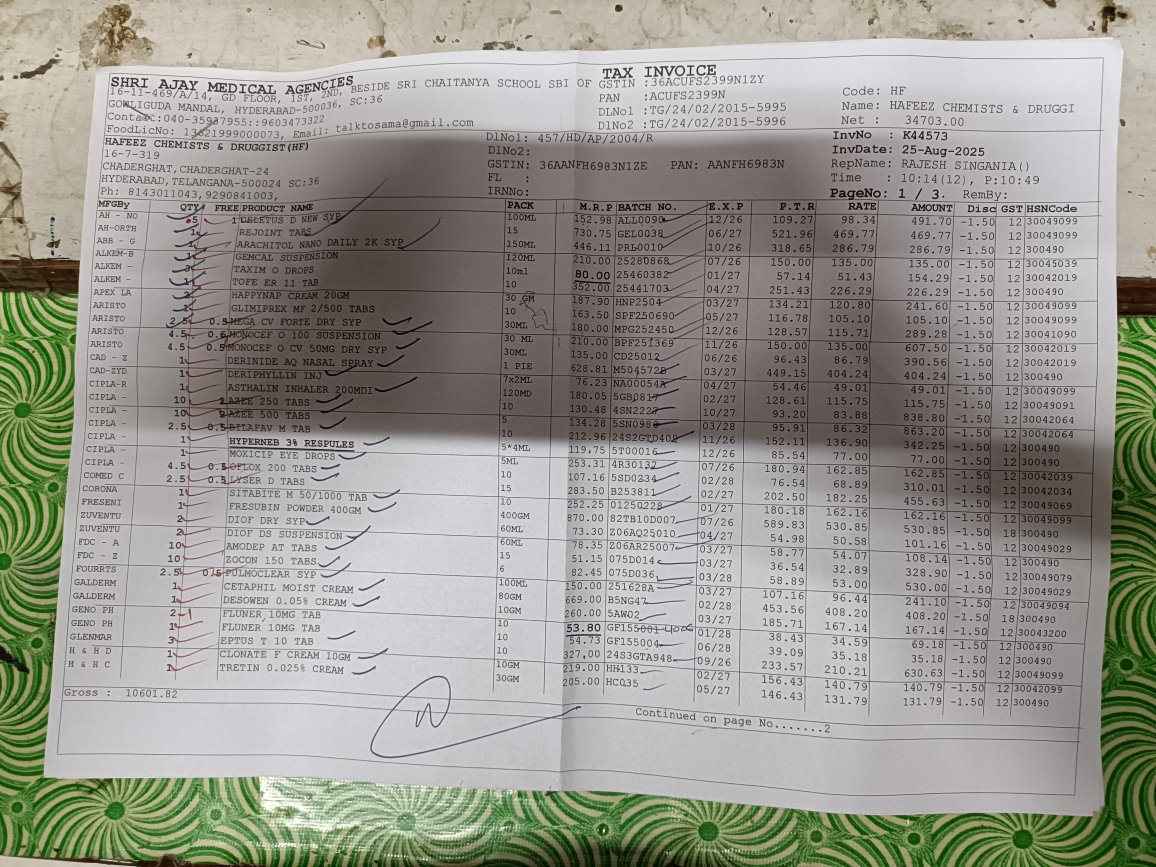 SHRI AJAY MEDICAL AGENCIES TAX INVOICE
16-11-469/A/14, GD FLOOR, 1ST, 2ND, BESIDE SRI CHAITANYA SCHOOL SBI OF GSTIN :36ACUFS2399N1ZY Code: HF
GOWLIGUDA MANDAL, HYDERABAD-500036, SC:36 PAN :ACUFS2399N Name: HAFEEZ CHEMISTS & DRUGGI
Contact:040-35937955::9603473322 DLNo1 :TG/24/02/2015-5995 Net : 34703.00
FoodLicNo: 13621999000073, Email: talktosama@gmail.com DLNo2 :TG/24/02/2015-5996
HAFEEZ CHEMISTS & DRUGGIST(HF) DlNo1: 457/HD/AP/2004/R InvNo : K44573
16-7-319 DlNo2: InvDate: 25-Aug-2025
CHADERGHAT,CHADERGHAT-24 GSTIN: 36AANFH6983N1ZE PAN: AANFH6983N RepName: RAJESH SINGANIA()
HYDERABAD,TELANGANA-500024 SC:36 FL : Time : 10:14(12), P:10:49
Ph: 8143011043,9290841003, IRNNo: PageNo: 1 / 3. RemBy:
MFGBy QTY FREE PRODUCT NAME PACK M.R.P BATCH NO. E.X.P P.T.R RATE AMOUNT Disc GST HSNCode
AH - NO 5 1 DELETUS D NEW SYP 100ML 152.98 ALL0090 12/26 109.27 98.34 491.70 -1.50 12 30049099
AH-ORTH 1 REJOINT TABS 15 730.75 GEL0038 06/27 521.96 469.77 469.77 -1.50 12 30049099
ABB - G 1 ARACHITOL NANO DAILY 2K SYP 150ML 446.11 PRL0010 10/26 318.65 286.79 286.79 -1.50 12 300490
ALKEM-B 1 GEMCAL SUSPENSION 120ML 210.00 2528D868 07/26 150.00 135.00 135.00 -1.50 12 30045039
ALKEM - 3 TAXIM O DROPS 10ml 80.00 25460382 01/27 57.14 51.43 154.29 -1.50 12 30042019
ALKEM - 1 TOFE ER 11 TAB 10 352.00 25441703 04/27 251.43 226.29 226.29 -1.50 12 300490
APEX LA 2 HAPPYNAP CREAM 20GM 30 GM 187.90 HNP2504 03/27 134.21 120.80 241.60 -1.50 12 30049099
ARISTO 1 GLIMIPREX MF 2/500 TABS 10 163.50 SPF250690 05/27 116.78 105.10 105.10 -1.50 12 300490
ARISTO 2.5 0.5 MEGA CV FORTE DRY SYP 30ML 180.00 MPG252450 12/26 128.57 115.71 289.28 -1.50 12 30041090
ARISTO 4.5 0.5 MONOCEF O 100 SUSPENSION 30 ML 210.00 BPF251369 11/26 150.00 135.00 607.50 -1.50 12 30042019
ARISTO 4.5 0.5 MONOCEF O CV 50MG DRY SYP 30ML 135.00 CD25012 06/26 96.43 86.79 390.56 -1.50 12 30042019
CAD - Z 1 DERINIDE AQ NASAL SPRAY 1 PIE 628.81 M504572B 03/27 449.15 404.24 404.24 -1.50 12 300490
CAD-ZYD 1 DERIPHYLLIN INJ 7x2ML 76.23 NA00054A 04/27 54.46 49.01 49.01 -1.50 12 30049099
CIPLA-R 1 ASTHALIN INHALER 200MDI 120MD 180.05 5GB0817 02/27 128.61 115.75 115.75 -1.50 12 30049091
CIPLA - 10 2 AZEE 250 TABS 10 130.48 4SN2227 10/27 93.20 83.88 838.80 -1.50 12 30042064
CIPLA - 10 2 AZEE 500 TABS 5 134.28 5SN0980 03/28 95.91 86.32 863.20 -1.50 12 30042064
CIPLA - 2.5 0.5 BILAFAV M TAB 10 212.96 24S2GTD402 11/26 152.11 136.90 342.25 -1.50 12 300490
CIPLA - 1 HYPERNEB 3% RESPULES 5*4ML 119.75 5T00016 12/26 85.54 77.00 77.00 -1.50 12 300490
CIPLA - 1 MOXICIP EYE DROPS 5ML 253.31 4R30132 07/26 180.94 162.85 162.85 -1.50 12 300490
CIPLA - 4.5 0.5 OFLOX 200 TABS 10 107.16 5SD0234 02/28 76.54 68.89 310.01 -1.50 12 30042034
COMED C 2.5 0.5 LYSER D TABS 15 283.50 B253811 02/27 202.50 182.25 455.63 -1.50 12 30049069
CORONA 1 SITABITE M 50/1000 TAB 10 252.25 01250228 01/27 180.18 162.16 162.16 -1.50 12 30049099
FRESENI 1 FRESUBIN POWDER 400GM 400GM 870.00 82TB10D007 07/26 589.83 530.85 530.85 -1.50 18 300490
ZUVENTU 2 DIOF DRY SYP 60ML 73.30 Z06AQ25010 04/27 54.98 50.58 101.16 -1.50 12 30049029
ZUVENTU 2 DIOF DS SUSPENSION 60ML 78.35 Z06AR25007 03/27 58.77 54.07 108.14 -1.50 12 300490
FDC - A 10 AMODEP AT TABS 15 51.15 075D014 03/27 36.54 32.89 328.90 -1.50 12 30049079
FDC - Z 10 ZOCON 150 TABS 6 82.45 075D036 03/28 58.89 53.00 530.00 -1.50 12 30049029
FOURRTS 2.5 0.5 PULMOCLEAR SYP 100ML 150.00 251628A 03/27 107.16 96.44 241.10 -1.50 12 30049094
GALDERM 1 CETAPHIL MOIST CREAM 80GM 669.00 BSNG47 02/28 453.56 408.20 408.20 -1.50 18 300490
GALDERM 1 DESOWEN 0.05% CREAM 10GM 260.00 5AW02 03/27 185.71 167.14 167.14 -1.50 12 30043200
GENO PH 2 -1 FLUNER 10MG TAB 10 53.80 GF155001 4006 01/28 38.43 34.59 69.18 -1.50 12 300490
GENO PH 1 FLUNER 10MG TAB 10 54.73 GF155004 06/28 39.09 35.18 35.18 -1.50 12 300490
GLENMAR 3 EPTUS T 10 TAB 10 327.00 24S3GTA948 09/26 233.57 210.21 630.63 -1.50 12 30049099
H & H D 1 CLONATE F CREAM 10GM 10GM 219.00 HH133 02/27 156.43 140.79 140.79 -1.50 12 30042099
H & H C 1 TRETIN 0.025% CREAM 30GM 205.00 HC035 05/27 146.43 131.79 131.79 -1.50 12 300490
Gross : 10601.82
Continued on page No.......2